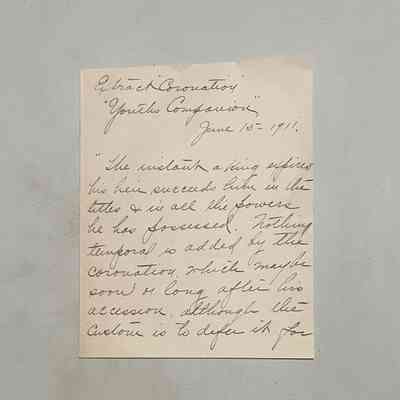 Extract "Coronation"
"Youths Companion"
June 15 - 1911.
"The instant a King expires
his heir succeeds him in the
titles & in all the powers
he has possessed. Nothing
temporal is added by the
coronation, which may be
soon or long after his
accession, although the
custom is to defer it for